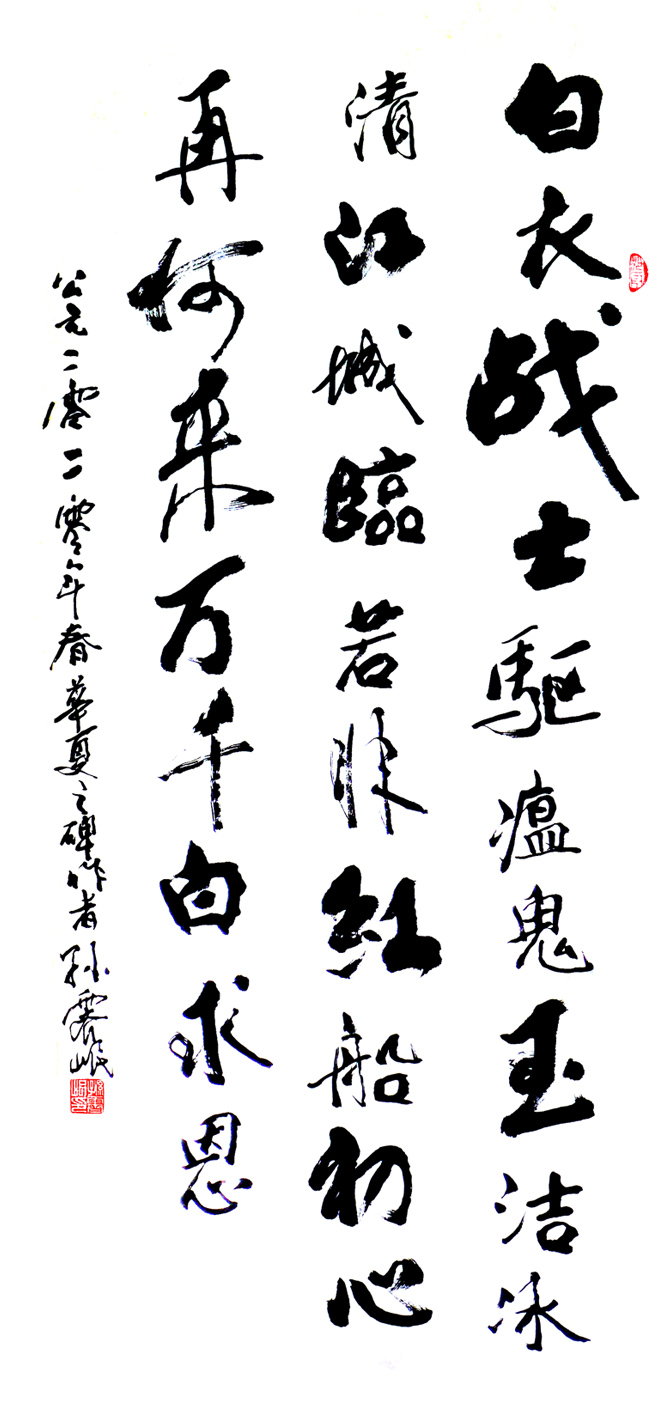 白衣战士驅瘟鬼玉洁冰
清江城臨若昧红船初心
再何来万千白求恩
公元二零二零年春華夏之碑作者孙震岷